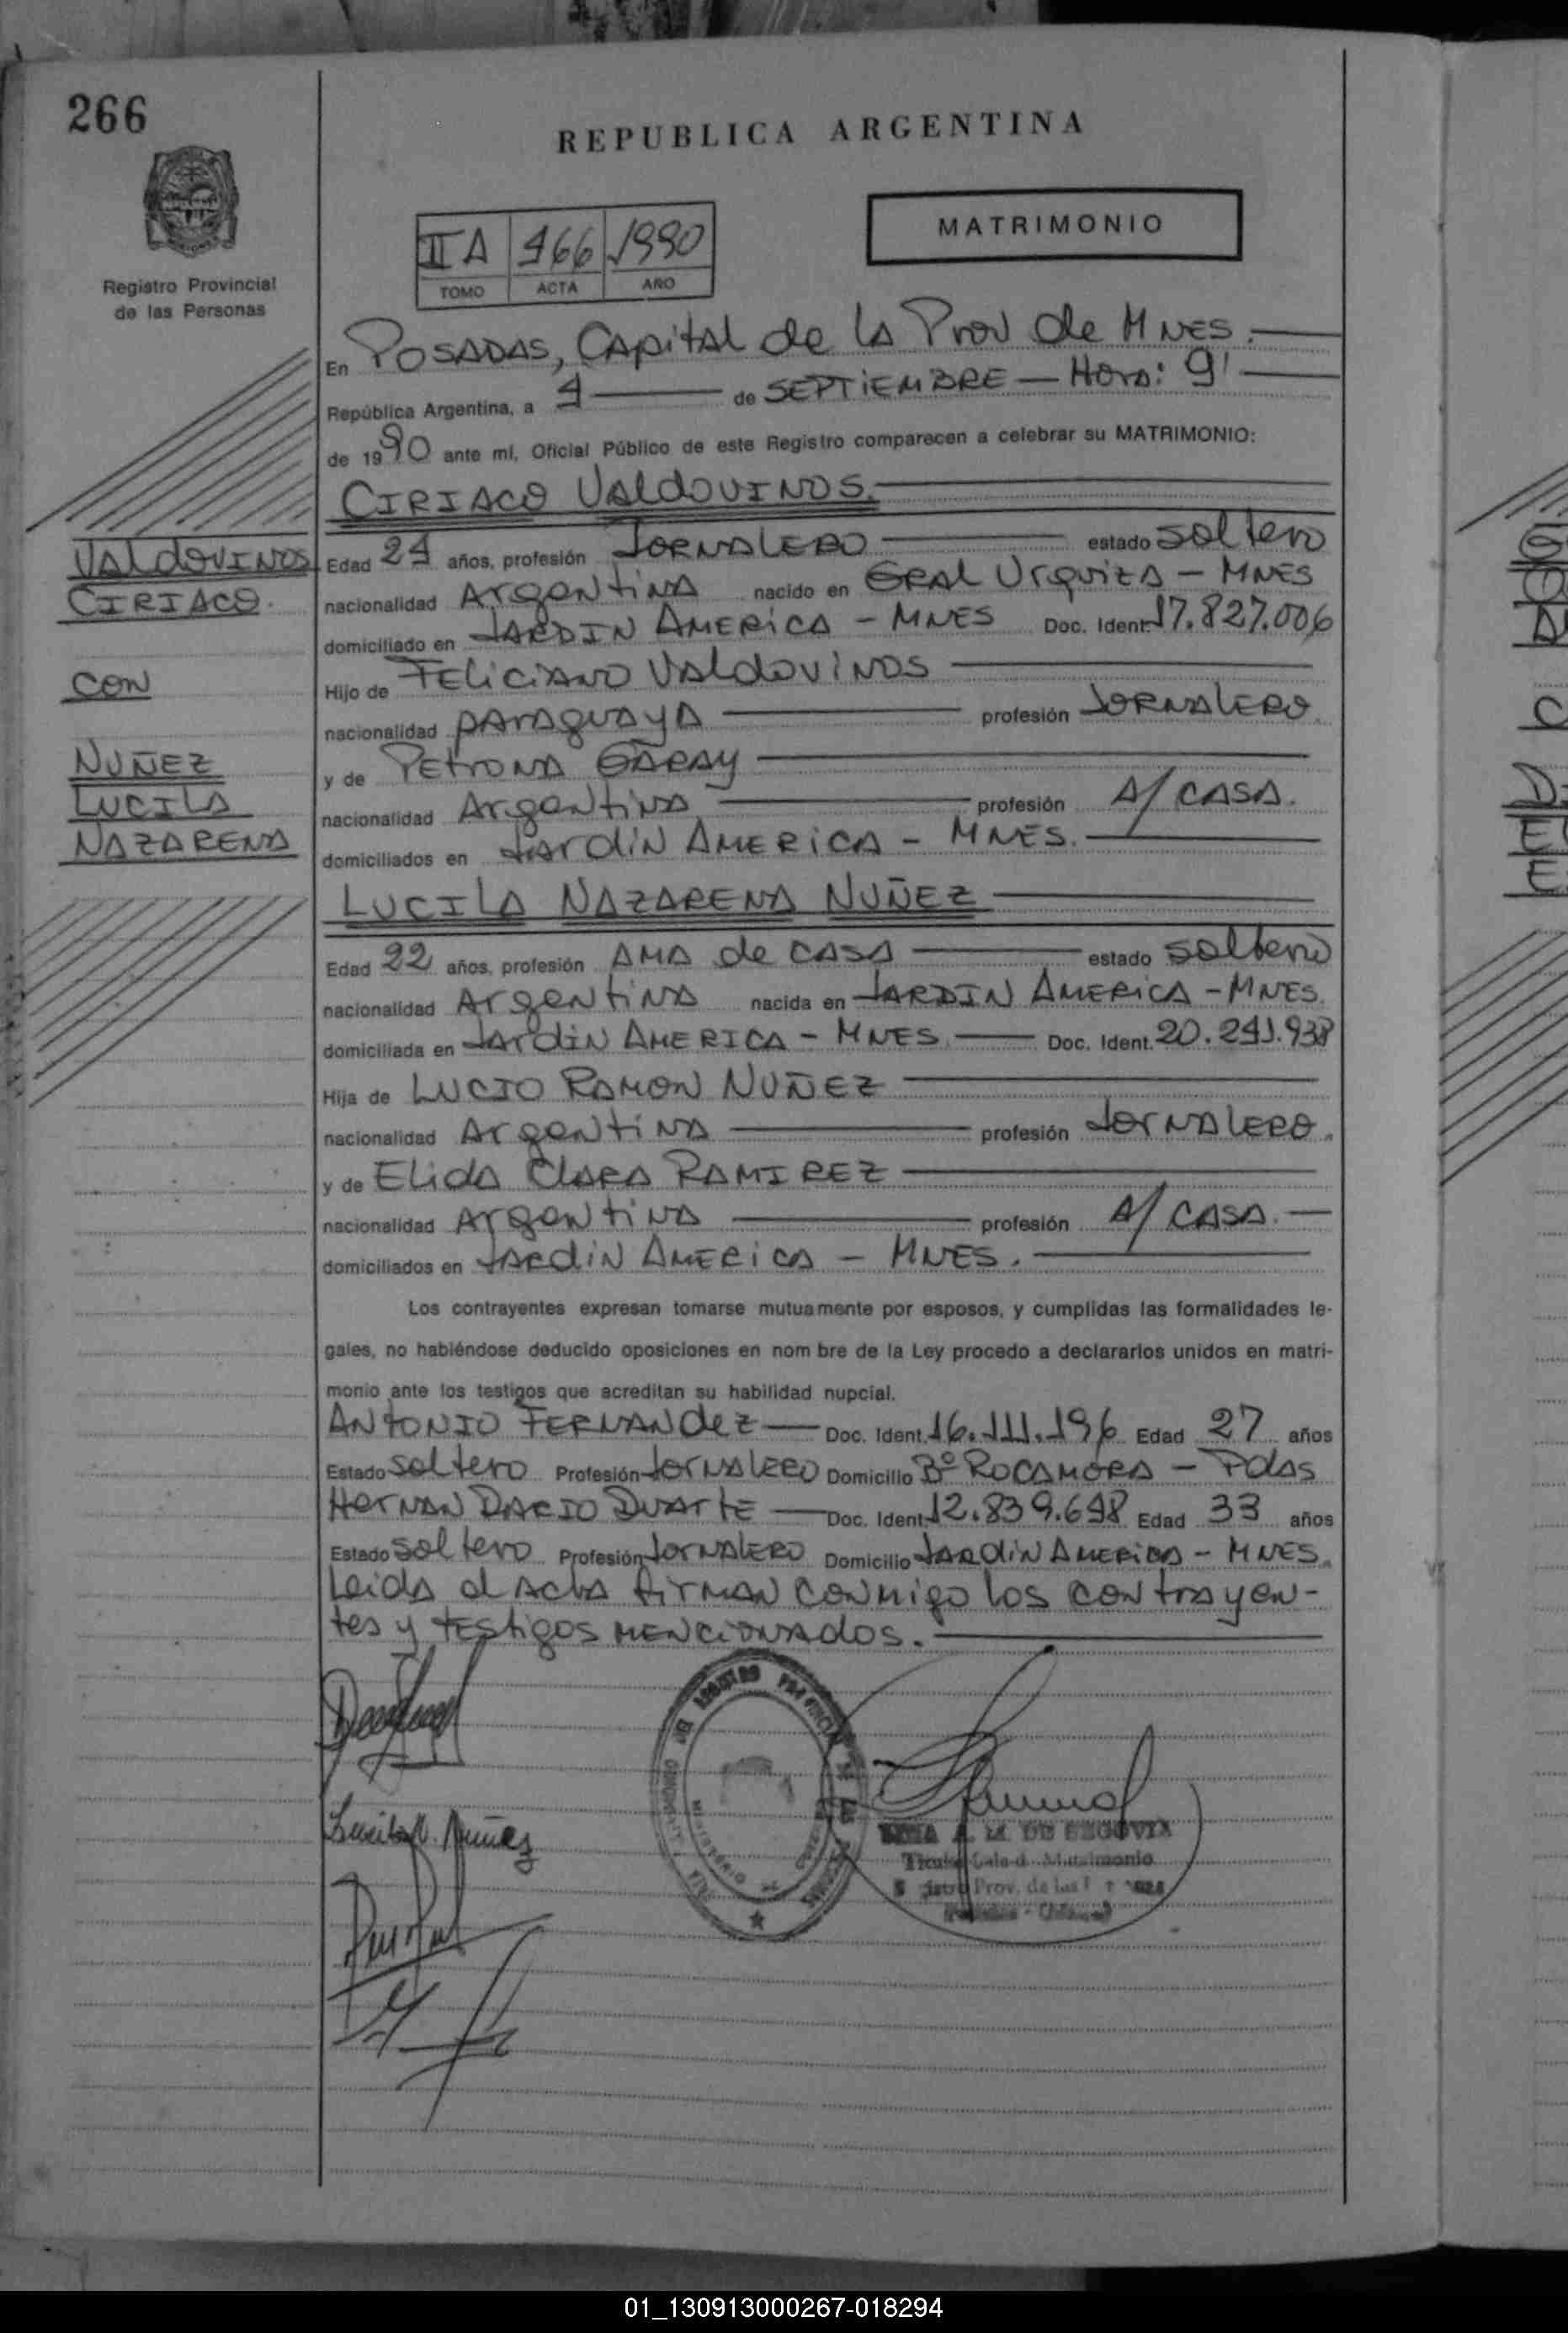 266
REPUBLICA ARGENTINA
MATRIMONIO
II A 466 1990
TOMO ACTA AÑO
Registro Provincial
de las Personas
En POSADAS, CAPITAL de LA Prov de MNES.
República Argentina, a 4 de SEPTIEMBRE — Hora: 9'
de 1990 ante mí, Oficial Público de este Registro comparecen a celebrar su MATRIMONIO:
CIRIACO VALDOVINOS.
VALDOVINOS
CIRIACO.
CON
NUÑEZ
LUCILA
NAZARENA
Edad 24 años, profesión JORNALERO estado soltero
nacionalidad Argentina nacido en GRAL Urquiza - MNES
domiciliado en JARDIN AMERICA - MNES Doc. Ident. 17.827.006
Hijo de FELICIANO VALDOVINOS
nacionalidad paraguaya profesión JORNALERO.
y de PETRONA GARAY
nacionalidad Argentina profesión A/ CASA.
domiciliados en Jardin AMERICA - MNES.
LUCILA NAZARENA NUÑEZ
Edad 22 años, profesión AMA de CASA estado soltera
nacionalidad Argentina nacida en JARDIN AMERICA - MNES.
domiciliada en Jardin AMERICA - MNES Doc. Ident. 20.241.938
Hija de LUCIO RAMON NUÑEZ
nacionalidad Argentina profesión JORNALERO.
y de Elida Clara RAMIREZ
nacionalidad Argentina profesión A/ CASA.
domiciliados en Jardin AMERICA - MNES.
Los contrayentes expresan tomarse mutuamente por esposos, y cumplidas las formalidades le-
gales, no habiéndose deducido oposiciones en nom bre de la Ley procedo a declararlos unidos en matri-
monio ante los testigos que acreditan su habilidad nupcial.
ANTONIO FERNANdez Doc. Ident. 16.111.196 Edad 27 años
Estado soltero Profesión Jornalero Domicilio Bº ROCAMORA - Pdas
Hernan DARIO Duarte Doc. Ident. 12.839.698 Edad 33 años
Estado soltero Profesión Jornalero Domicilio Jardin AMERICA - MNES.
Leida el Acta firman conmigo los contrayen-
tes y testigos mencionados.
Lucila N. Nuñez
A. M. DE SEGOVIA
Matrimonio
Prov. de las
01_130913000267-018294